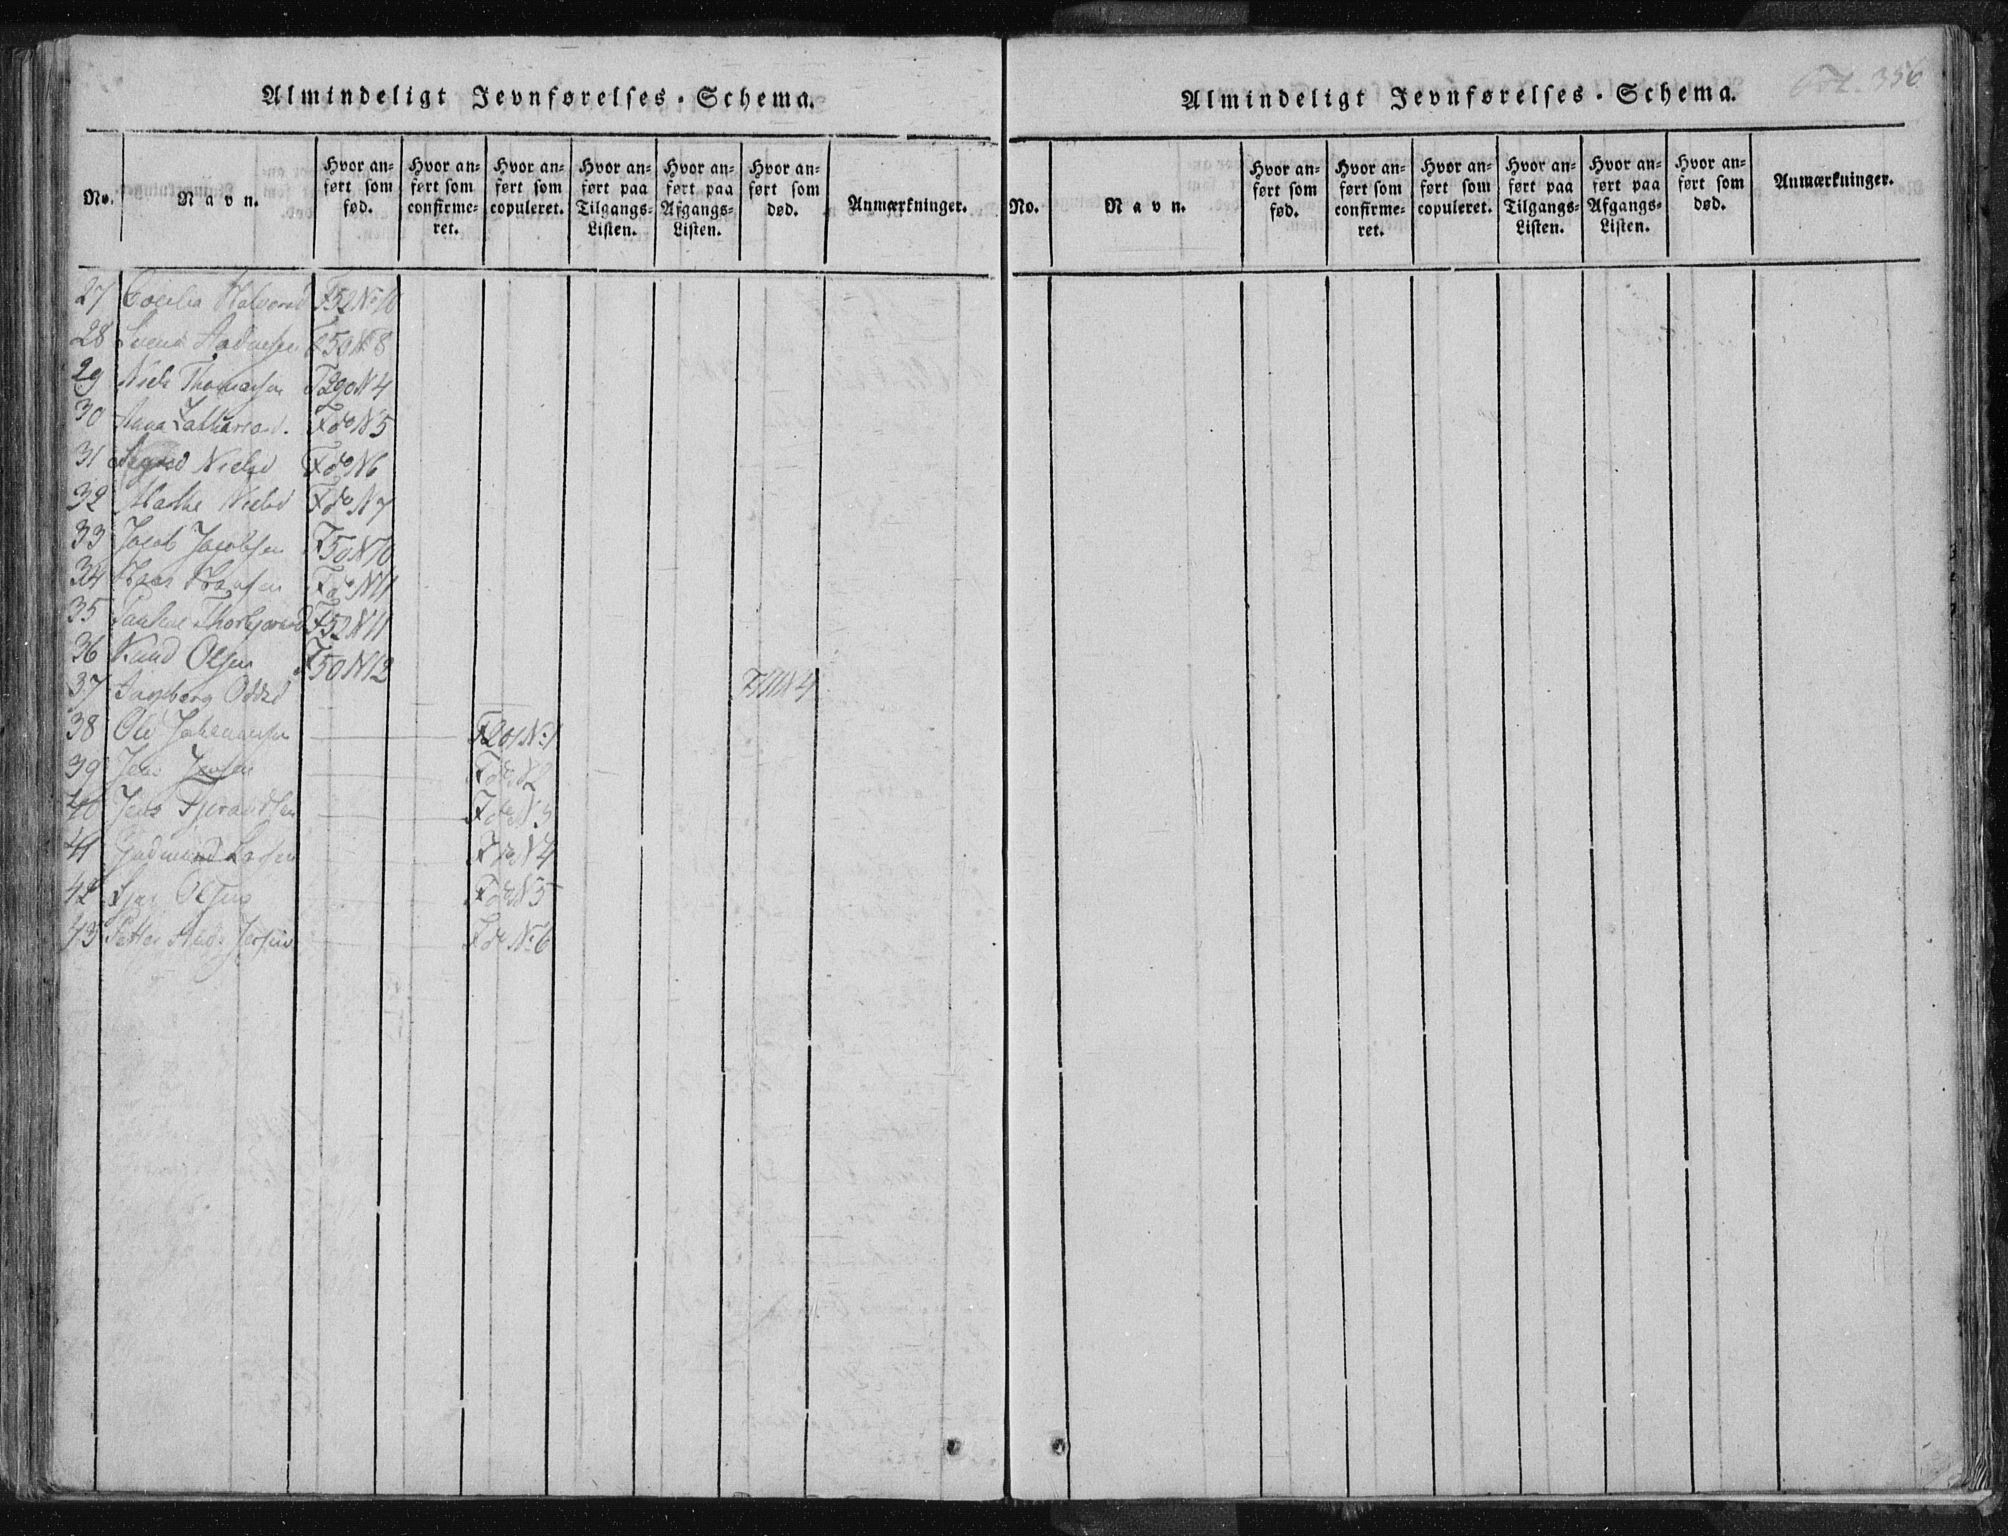 Almindeligt Jevnførelses-Schema.
No. Navn. Hvor anført som fød. Hvor anført som confirmeret. Hvor anført som copuleret. Hvor anført paa Tilgangs-Listen. Hvor anført paa Afgangs-Listen. Hvor anført som død. Anmærkninger.
27 Cecilia Halvorsd F52 No 10
28 Svend F50 N 8
29 Niels Thomasen N 4
30 Anna Zachariasd. F do N 5
31 Nielsd F do N 6
32 Marthe Nielsd F do N 7
33 Jacob Jacobsen F50 N 10
34 Hans Hansen F do N 11
35 F52 N 11
36 Knud Olsen F50 N 12
37 Ingeborg N 4
38 Ole Johannesen F201 No 1
39 Jens Jensen F do N 2
40 Jens F do N 3
41 Gudmund F do N 4
42 Olsen F do N 5
43 Petter F do No 6
Fol. 356
Almindeligt Jevnførelses-Schema.
No. Navn. Hvor anført som fød. Hvor anført som confirmeret. Hvor anført som copuleret. Hvor anført paa Tilgangs-Listen. Hvor anført paa Afgangs-Listen. Hvor anført som død. Anmærkninger.